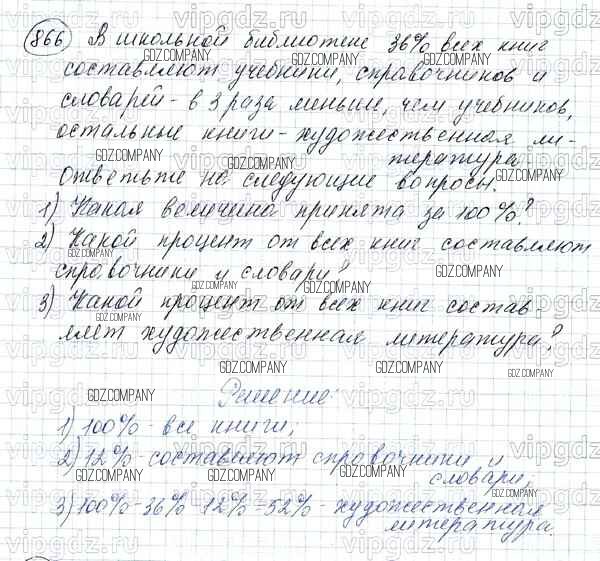 866 В школьной библиотеке 36% всех книг
составляют учебники, справочников и
словарей - в 3 раза меньше, чем учебников,
остальные книги - художественная ли-
тература.
ответьте на следующие вопросы.
1) Какая величина принята за 100%?
2) Какой процент от всех книг составляют
справочники и словари?
3) Какой процент от всех книг состав-
ляет художественная литература?
Решение:
1) 100% - все книги;
2) 12% - составляют справочники и
словари;
3) 100% - 36% - 12% = 52% - художественная
литература.